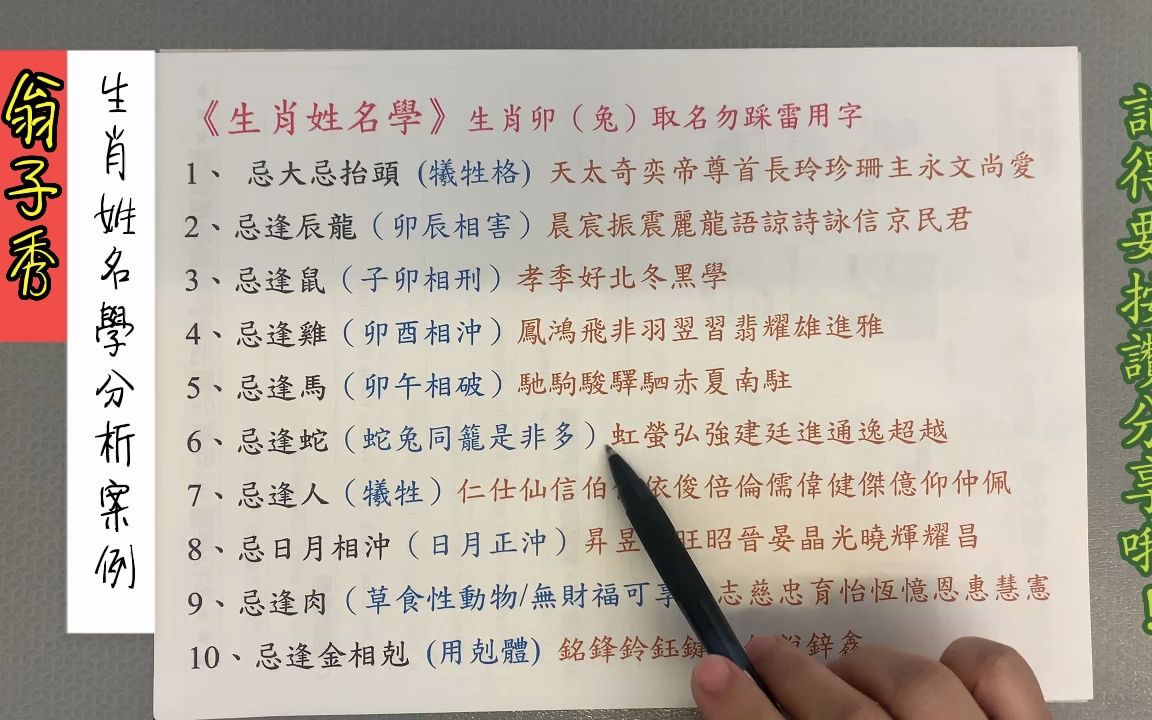 翁子秀
生肖姓名學分析案例
《生肖姓名學》生肖卯（兔）取名勿踩雷用字
1、 忌大忌抬頭 (犧牲格) 天太奇奕帝尊首長玲珍珊主永文尚愛
2、忌逢辰龍（卯辰相害）晨宸振震麗龍語諒詩詠信京民君
3、忌逢鼠（子卯相刑）孝季好北冬黑學
4、忌逢雞（卯酉相沖）鳳鴻飛非羽翌習翡耀雄進雅
5、忌逢馬（卯午相破）馳駒駿驛駟赤夏南駐
6、忌逢蛇（蛇兔同籠是非多）虹螢弘強建廷進通逸超越
7、忌逢人（犧牲）仁仕仙信伯依俊倍倫儒偉健傑億仰仲佩
8、忌日月相沖（日月正沖）昇昱旺昭晉晏晶光曉輝耀昌
9、忌逢肉（草食性動物/無財福可享志慈忠育怡恆憶恩惠慧憲
10、忌逢金相剋 (用剋體) 銘鋒鈴鈺鋅鑫
記得要按讚分享哦！